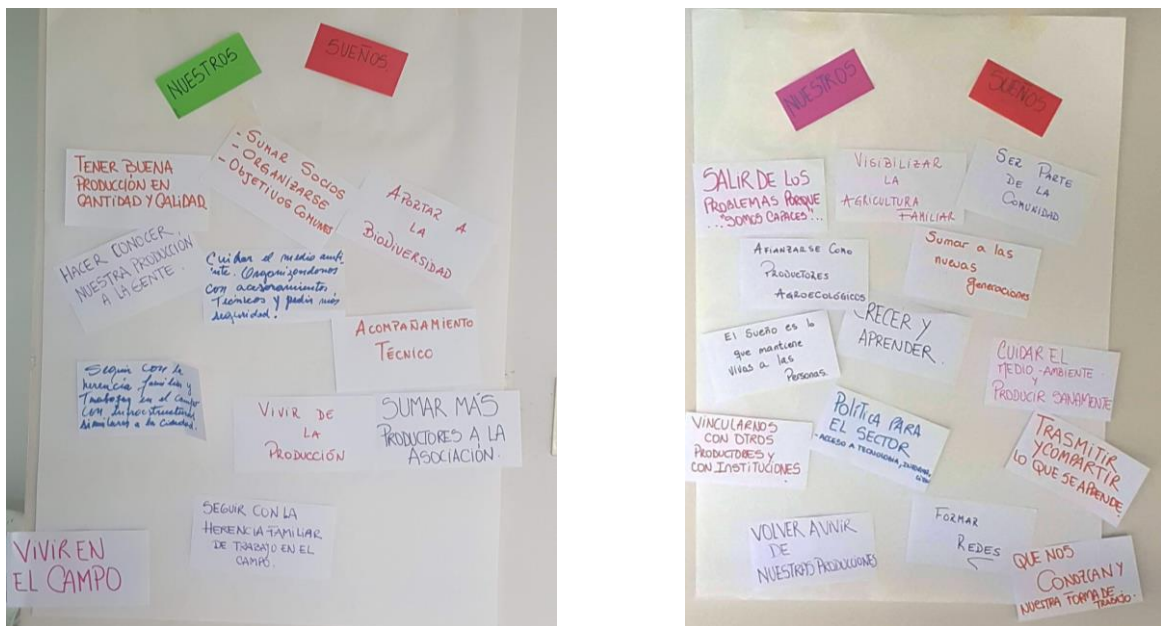 NUESTROS
SUEÑOS
TENER BUENA
PRODUCCIÓN EN
CANTIDAD Y CALIDAD
- SUMAR SOCIOS
- ORGANIZARSE
- OBJETIVOS COMUNES
APORTAR A
LA
BIODIVERSIDAD
HACER CONOCER
NUESTRA PRODUCCIÓN
A LA GENTE.
Cuidar el medio ambi
ente. Organizandonos
con acesoramientos
Tecnicos y pedir más
seguridad.
ACOMPAÑAMIENTO
TÉCNICO
Seguir con la
herencia familiar y
Trabajar en el campo
con infraestructura
similares a la ciudad.
VIVIR DE
LA
PRODUCCIÓN
SUMAR MÁS
PRODUCTORES A LA
ASOCIACIÓN.
SEGUIR CON LA
HERENCIA FAMILIAR
DE TRABAJO EN EL
CAMPO.
VIVIR EN
EL CAMPO
NUESTROS
SUEÑOS
SALIR DE LOS
PROBLEMAS PORQUE
"SOMOS CAPACES"...
VISIBILIZAR
LA
AGRICULTURA
FAMILIAR
SER PARTE
DE LA
COMUNIDAD
AFIANZARSE COMO
PRODUCTORES
AGROECOLÓGICOS
Sumar a las
nuevas
generaciones
El Sueño es lo
que mantiene
vivas a las
Personas.
CRECER Y
APRENDER.
CUIDAR EL
MEDIO-AMBIENTE
Y
PRODUCIR SANAMENTE
VINCULARNOS
CON OTROS
PRODUCTORES Y
CON INSTITUCIONES
POLÍTICA PARA
EL SECTOR
- ACCESO A TECNOLOGIA,
TRASMITIR
Y COMPARTIR
LO QUE SE APRENDE
VOLVER A VIVIR
DE
NUESTRAS PRODUCCIONES
FORMAR
REDES
QUE NOS
CONOZCAN Y
NUESTRA FORMA DE
TRABAJO.